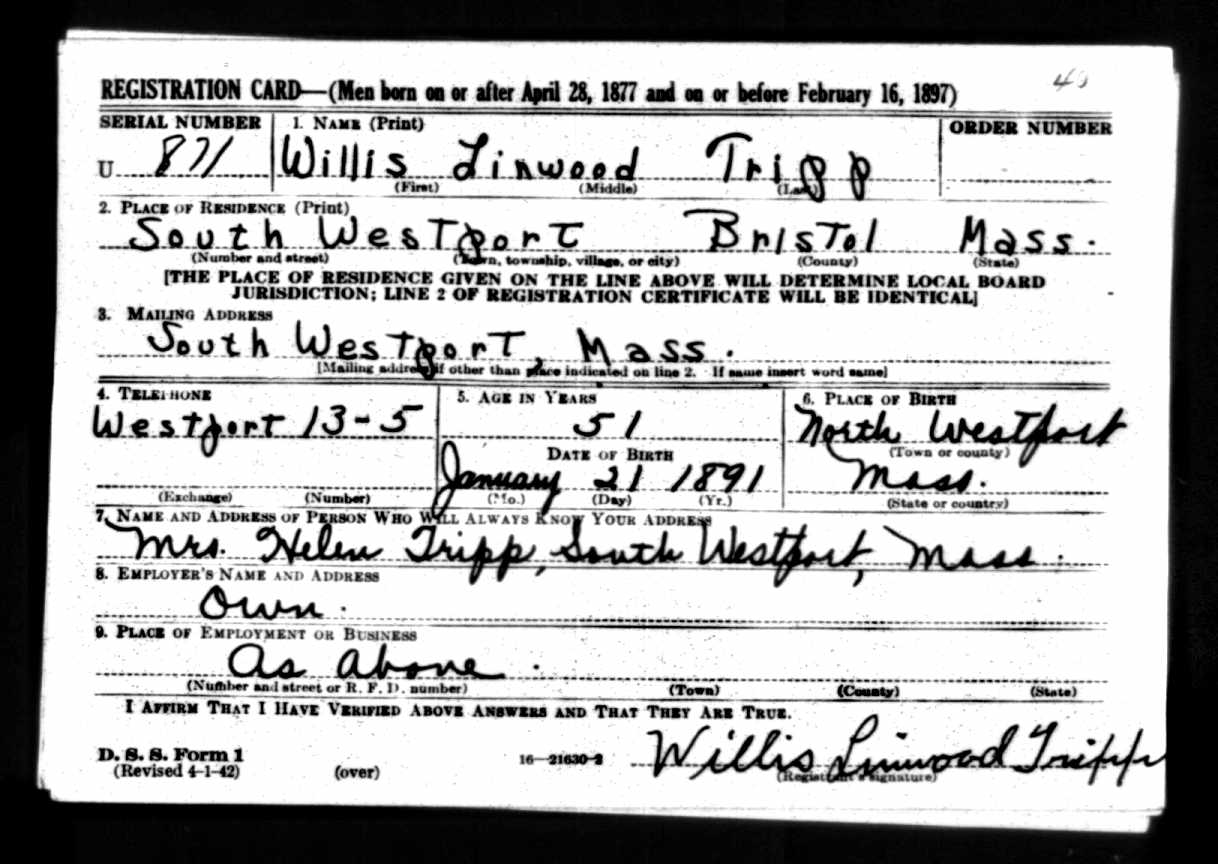 40
REGISTRATION CARD—(Men born on or after April 28, 1877 and on or before February 16, 1897)
SERIAL NUMBER 1. NAME (Print) ORDER NUMBER
U 871 Willis Linwood Tripp
(First) (Middle) (Last)
2. PLACE OF RESIDENCE (Print)
South Westport Bristol Mass.
(Number and street) (Town, township, village, or city) (County) (State)
[THE PLACE OF RESIDENCE GIVEN ON THE LINE ABOVE WILL DETERMINE LOCAL BOARD
JURISDICTION; LINE 2 OF REGISTRATION CERTIFICATE WILL BE IDENTICAL]
3. MAILING ADDRESS
South Westport, Mass.
[Mailing address if other than place indicated on line 2. If same insert word same]
4. TELEPHONE 5. AGE IN YEARS 6. PLACE OF BIRTH
Westport 13-5 51 North Westport
(Town or county)
DATE OF BIRTH
January 21 1891 Mass.
(Exchange) (Number) (Mo.) (Day) (Yr.) (State or country)
7. NAME AND ADDRESS OF PERSON WHO WILL ALWAYS KNOW YOUR ADDRESS
Mrs. Helen Tripp, South Westport, Mass.
8. EMPLOYER'S NAME AND ADDRESS
Own.
9. PLACE OF EMPLOYMENT OR BUSINESS
As Above.
(Number and street or R. F. D. number) (Town) (County) (State)
I AFFIRM THAT I HAVE VERIFIED ABOVE ANSWERS AND THAT THEY ARE TRUE.
D. S. S. Form 1
(Revised 4-1-42) (over) 16—21630-2 Willis Linwood Tripp
(Registrant's signature)